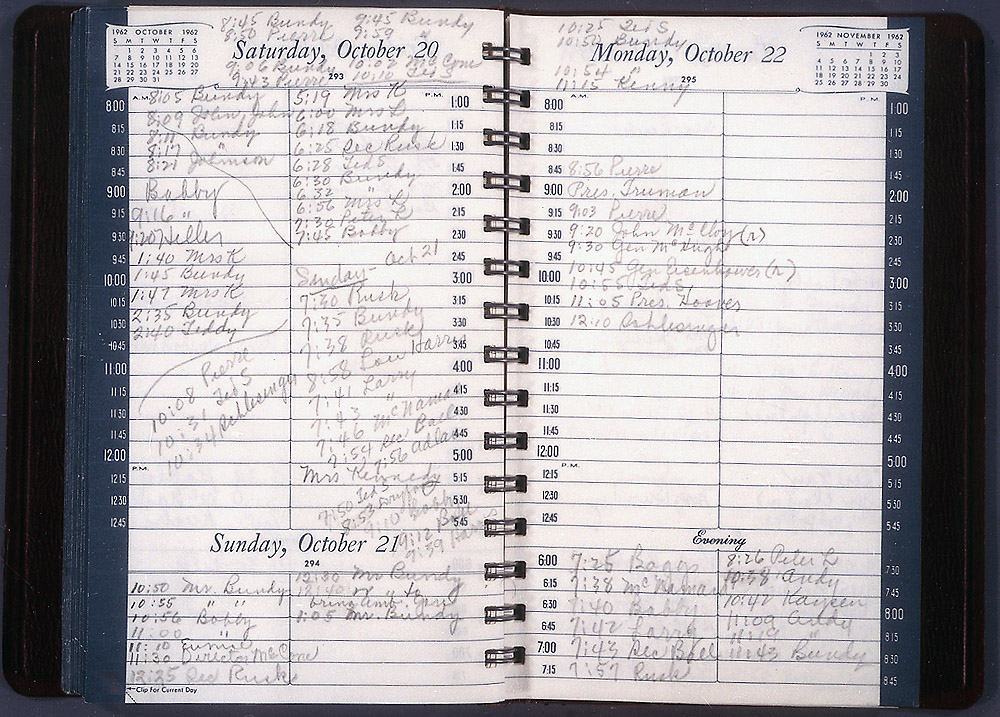 1962 OCTOBER 1962
S M T W T F S
1 2 3 4 5 6
7 8 9 10 11 12 13
14 15 16 17 18 19 20
21 22 23 24 25 26 27
28 29 30 31
8:45 Bundy 9:45 Bundy
8:50 Pierre 9:59 "
Saturday, October 20
9:06 Bundy 10:03
9:43 Pierre 10:10 Ted S
293
A.M.
P.M.
8:00 8:05 Bundy 5:19 Mrs K 1:00
8:09 John, John 6:00 Mrs L
8:15 8:11 Bundy 6:18 Bundy 1:15
8:17 " 6:25 Sec Rusk
8:30 8:21 Johnson 6:28 Ted S 1:30
8:45 6:30 Bundy 1:45
9:00 Bobby 6:32 " 2:00
6:56 Mrs L
9:15 9:16 " 7:30 Peter L 2:15
9:30 9:20 Heller 7:45 Bobby 2:30
9:45 1:40 Mrs K Oct 21 2:45
10:00 1:45 Bundy Sunday 3:00
10:15 1:47 Mrs K 7:30 Rusk 3:15
10:30 2:35 Bundy 7:35 Bundy 3:30
10:45 2:40 Teddy 7:38 Rusk 3:45
11:00 10:08 Pierre 8:58 Lou Harris 4:00
11:15 10:31 Ted S 7:41 Larry 4:15
11:30 10:34 Schlesinger 7:43 " 4:30
11:45 7:46 McNamara 4:45
7:54 Sec Ball
12:00 7:56 5:00
P.M.
12:15 Mrs Kennedy 5:15
12:30 7:50 Ted S 5:30
8:53
12:45 9:10 Bobby 5:45
9:12 Ball
9:59
Sunday, October 21
294
10:50 Mr. Bundy 12:30 Mr Bundy
10:55 " " 12:40 " " to
bring Amb. Gore
10:56 Bobby 1:05 Mr. Bundy
11:00 "
11:10
11:30 Director McCone
12:25 Sec Rusk
Clip For Current Day
10:25 Ted S
10:50 Bundy
Monday, October 22
10:54 "
11:15 Kenny
295
1962 NOVEMBER 1962
S M T W T F S
1 2 3
4 5 6 7 8 9 10
11 12 13 14 15 16 17
18 19 20 21 22 23 24
25 26 27 28 29 30
A.M.
P.M.
8:00 1:00
8:15 1:15
8:30 1:30
8:45 8:56 Pierre 1:45
9:00 Pres. Truman 2:00
9:15 9:03 Pierre 2:15
9:30 9:20 John McCloy (r) 2:30
9:30 Gen McHugh
9:45 10:45 Gen Eisenhower (r) 2:45
10:00 10:55 Ted S 3:00
10:15 11:05 Pres. Hoover 3:15
10:30 12:10 Schlesinger 3:30
10:45 3:45
11:00 4:00
11:15 4:15
11:30 4:30
11:45 4:45
12:00 5:00
P.M.
12:15 5:15
12:30 5:30
12:45 5:45
Evening
6:00 7:25 Boggs 8:26 Peter L 7:30
6:15 7:38 McNamara 10:38 Andy 7:45
6:30 7:40 Bobby 10:42 Kaysen 8:00
6:45 7:42 Larry 11:09 Andy 8:15
11:19 "
7:00 7:43 Sec Ball 11:43 Bundy 8:30
7:15 7:57 Rusk 8:45